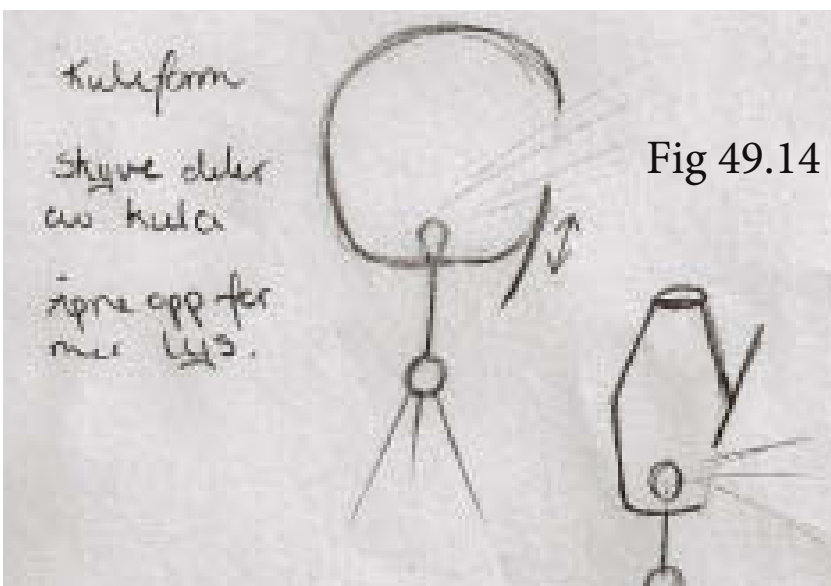 Kuleform
Skyve deler
av kula
Åpne opp for
mer lys.
Fig 49.14